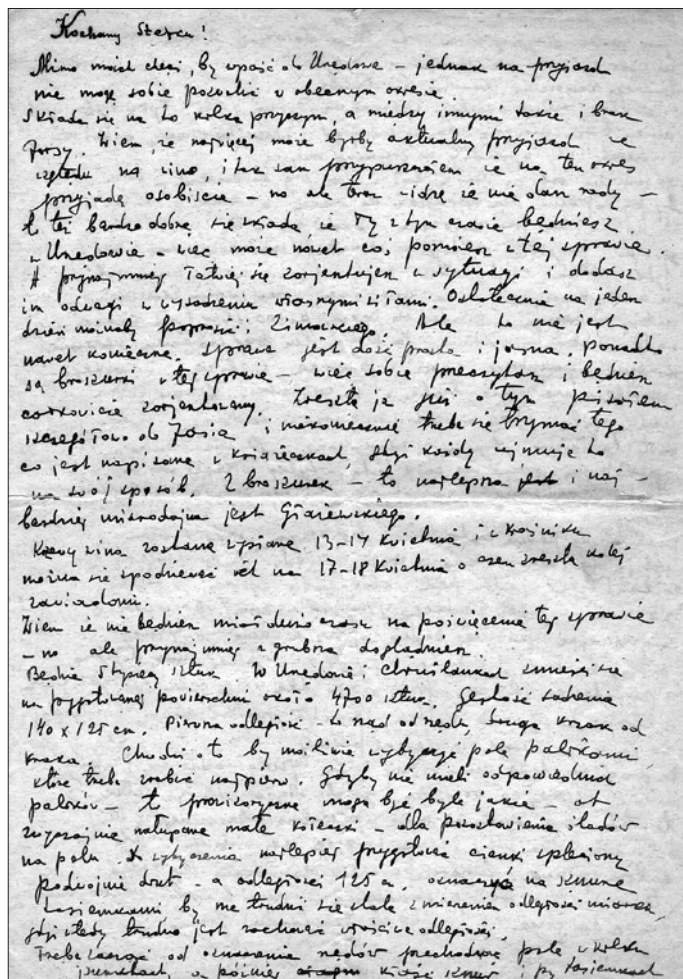 Kochany Stefku!
Mimo moich chęci, by wpaść do Urzędowa – jednak na przyjazd
nie mogę sobie pozwolić w obecnym okresie.
Składa się na to kilka przyczyn, a między innymi także i brak
forsy. Wiem, że najwięcej może byłby aktualny przyjazd ze
względu na wino, i tak sam przypuszczałem że na ten okres
przyjadę osobiście – no ale teraz widzę że nie dam rady –
to też bardzo dobrze się składa że Ty w tym czasie będziesz
w Urzędowie – więc może nawet co pomożesz w tej sprawie.
A przynajmniej łatwiej się zorjentujesz w sytuacji i dodasz
im odwagi w wysadzeniu własnymi siłami. Ostatecznie na jeden
dzień można by poprosić i Zimowskiego. Ale to nie jest
nawet konieczne. Sprawa jest dość prosta i jasna. Ponadto
są broszurki w tej sprawie – więc sobie przeczytasz i będziesz
całkowicie zorjentowany. Zresztą ja już o tym pisałem
szczegółowo do Zosi i niekoniecznie trzeba się trzymać tego
co jest napisane w książeczkach, gdyż każdy ujmuje to
na swój sposób. Z broszurek – to najlepsza jest i naj-
bardziej miarodajna jest Giżewskiego.
Krzewy wina zostaną wysłane 13–14 kwietnia i w Kraśniku
można się spodziewać ich na 17–18 kwietnia o czem zresztą kolej
zawiadomi.
Wiem że nie będziesz miał dużo czasu na poświęcenie tej sprawie
– no ale przynajmniej z grubsza doglądniesz.
Będzie 5 tysięcy sztuk. W Urzędowie i Chruślankach zmieści się
na przygotowanej powierzchni około 4700 sztuk. Gęstość sadzenia
140 x 125 cm. Pierwsza odległość – to rząd od rzędu, druga krzak od
krzaka. Chodzi o to by możliwie wytyczyć pole palikami,
które trzeba zrobić najpierw. Gdyby nie mieli odpowiednich
palików – to prowizoryczne mogą być byle jakie – ot
zwyczajnie nałupane małe kołeczki – dla pozostawienia śladów
na polu. Do wytyczenia najlepiej przygotować cienki spleciony
podwójnie drut – a odległości 125 cm. oznaczyć na sznurze
tasiemkami by nie trudnić się stale z mierzeniem odległości miarką,
gdyż wtedy trudno jest zachować właściwe odległości.
Trzeba zacząć od oznaczenia rzędów przechodząc pole w kilku
punktach, a później kłaść sznur i przy tasiemkach